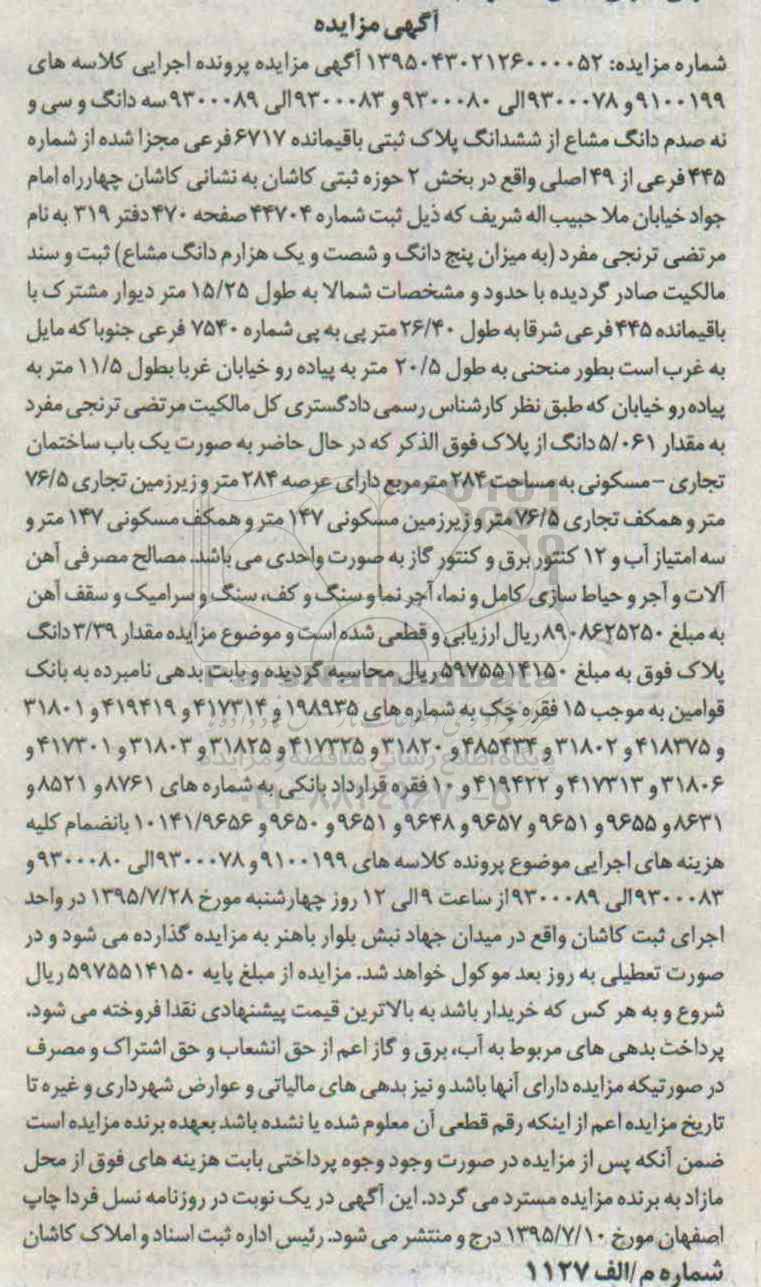 آگهی مزایده
شماره مزایده: ۱۳۹۵۰۴۳۰۲۱۲۶۰۰۰۰۵۲ آگهی مزایده پرونده اجرایی کلاسه های
۹۱۰۰۱۹۹ و ۹۳۰۰۰۷۸ الی ۹۳۰۰۰۸۰ و ۹۳۰۰۰۸۳ الی ۹۳۰۰۰۸۹ سه دانگ و سی و
نه صدم دانگ مشاع از ششدانگ پلاک ثبتی باقیمانده ۶۷۱۷ فرعی مجزا شده از شماره
۴۴۵ فرعی از ۴۹ اصلی واقع در بخش ۲ حوزه ثبتی کاشان به نشانی کاشان چهارراه امام
جواد خیابان ملا حبیب اله شریف که ذیل ثبت شماره ۴۴۷۰۴ صفحه ۴۷۰ دفتر ۳۱۹ به نام
مرتضی ترنجی مفرد (به میزان پنج دانگ و شصت و یک هزارم دانگ مشاع) ثبت و سند
مالکیت صادر گردیده با حدود و مشخصات شمالا به طول ۱۵/۲۵ متر دیوار مشترک با
باقیمانده ۴۴۵ فرعی شرقا به طول ۲۶/۴۰ متر پی به پی شماره ۷۵۴۰ فرعی جنوبا که مایل
به غرب است بطور منحنی به طول ۲۰/۵ متر به پیاده رو خیابان غربا بطول ۱۱/۵ متر به
پیاده رو خیابان که طبق نظر کارشناس رسمی دادگستری کل مالکیت مرتضی ترنجی مفرد
به مقدار ۵/۰۶۱ دانگ از پلاک فوق الذکر که در حال حاضر به صورت یک باب ساختمان
تجاری - مسکونی به مساحت ۲۸۴ مترمربع دارای عرصه ۲۸۴ متر و زیرزمین تجاری ۷۶/۵
متر و همکف تجاری ۷۶/۵ متر و زیرزمین مسکونی ۱۴۷ متر و همکف مسکونی ۱۴۷ متر و
سه امتیاز آب و ۱۲ کنتور برق و کنتور گاز به صورت واحدی می باشد. مصالح مصرفی آهن
آلات و آجر و حیاط سازی کامل و نما، آجر نما و سنگ و کف، سنگ و سرامیک و سقف آهن
به مبلغ ۸۹۰۸۶۲۵۲۵۰ ریال ارزیابی و قطعی شده است و موضوع مزایده مقدار ۳/۳۹ دانگ
پلاک فوق به مبلغ ۵۹۷۵۵۱۴۱۵۰ ریال محاسبه گردیده و بابت بدهی نامبرده به بانک
قوامین به موجب ۱۵ فقره چک به شماره های ۱۹۸۹۳۵ و ۴۱۷۳۱۴ و ۴۱۹۴۱۹ و ۳۱۸۰۱
و ۴۱۸۳۷۵ و ۳۱۸۰۲ و ۴۸۵۴۳۴ و ۳۱۸۲۰ و ۴۱۷۳۲۵ و ۳۱۸۲۵ و ۳۱۸۰۳ و ۴۱۷۳۰۱ و
۳۱۸۰۶ و ۴۱۷۳۱۳ و ۴۱۹۴۲۲ و ۱۰ فقره قرارداد بانکی به شماره های ۸۷۶۱ و ۸۵۲۱ و
۸۶۳۱ و ۹۶۵۵ و ۹۶۵۱ و ۹۶۵۷ و ۹۶۴۸ و ۹۶۵۱ و ۹۶۵۰ و ۱۰۱۴۱/۹۶۵۶ بانضمام کلیه
هزینه های اجرایی موضوع پرونده کلاسه های ۹۱۰۰۱۹۹ و ۹۳۰۰۰۷۸ الی ۹۳۰۰۰۸۰ و
۹۳۰۰۰۸۳ الی ۹۳۰۰۰۸۹ از ساعت ۹ الی ۱۲ روز چهارشنبه مورخ ۱۳۹۵/۷/۲۸ در واحد
اجرای ثبت کاشان واقع در میدان جهاد نبش بلوار باهنر به مزایده گذارده می شود و در
صورت تعطیلی به روز بعد موکول خواهد شد. مزایده از مبلغ پایه ۵۹۷۵۵۱۴۱۵۰ ریال
شروع و به هر کس که خریدار باشد به بالاترین قیمت پیشنهادی نقدا فروخته می شود.
پرداخت بدهی های مربوط به آب، برق و گاز اعم از حق انشعاب و حق اشتراک و مصرف
در صورتیکه مزایده دارای آنها باشد و نیز بدهی های مالیاتی و عوارض شهرداری و غیره تا
تاریخ مزایده اعم از اینکه رقم قطعی آن معلوم شده یا نشده باشد بعهده برنده مزایده است
ضمن آنکه پس از مزایده در صورت وجود وجوه پرداختی بابت هزینه های فوق از محل
مازاد به برنده مزایده مسترد می گردد. این آگهی در یک نوبت در روزنامه نسل فردا چاپ
اصفهان مورخ ۱۳۹۵/۷/۱۰ درج و منتشر می شود. رئیس اداره ثبت اسناد و املاک کاشان
شماره م/الف ۱۱۲۷